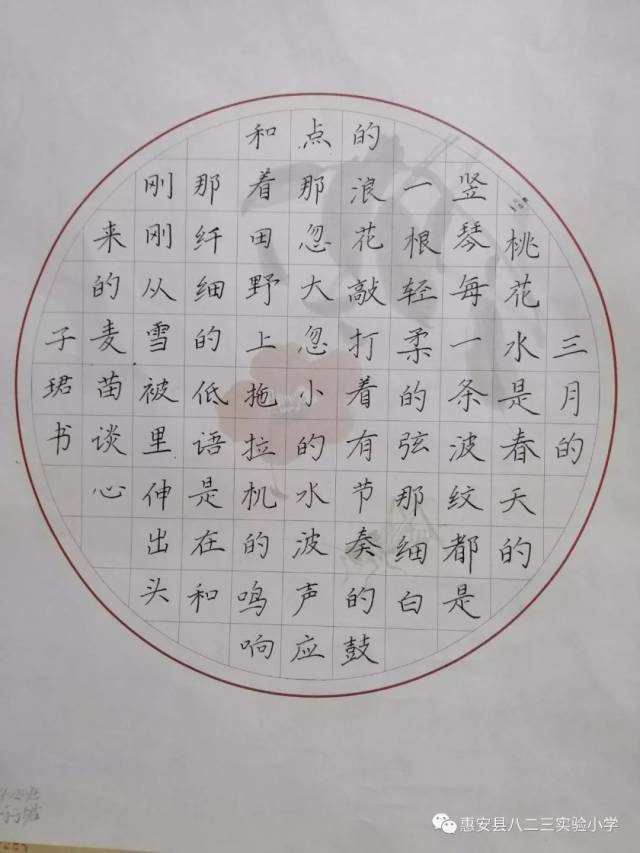 三月的
桃花水是春天的
竖琴每一条波纹都是
一根轻柔的弦那细白
的浪花敲打着有节奏的鼓
点那忽大忽小的水波声应
和着田野上拖拉机的鸣响
那纤细的低语是在和
刚刚从雪被里伸出头
来的麦苗谈心
子珺书
惠安县八二三实验小学